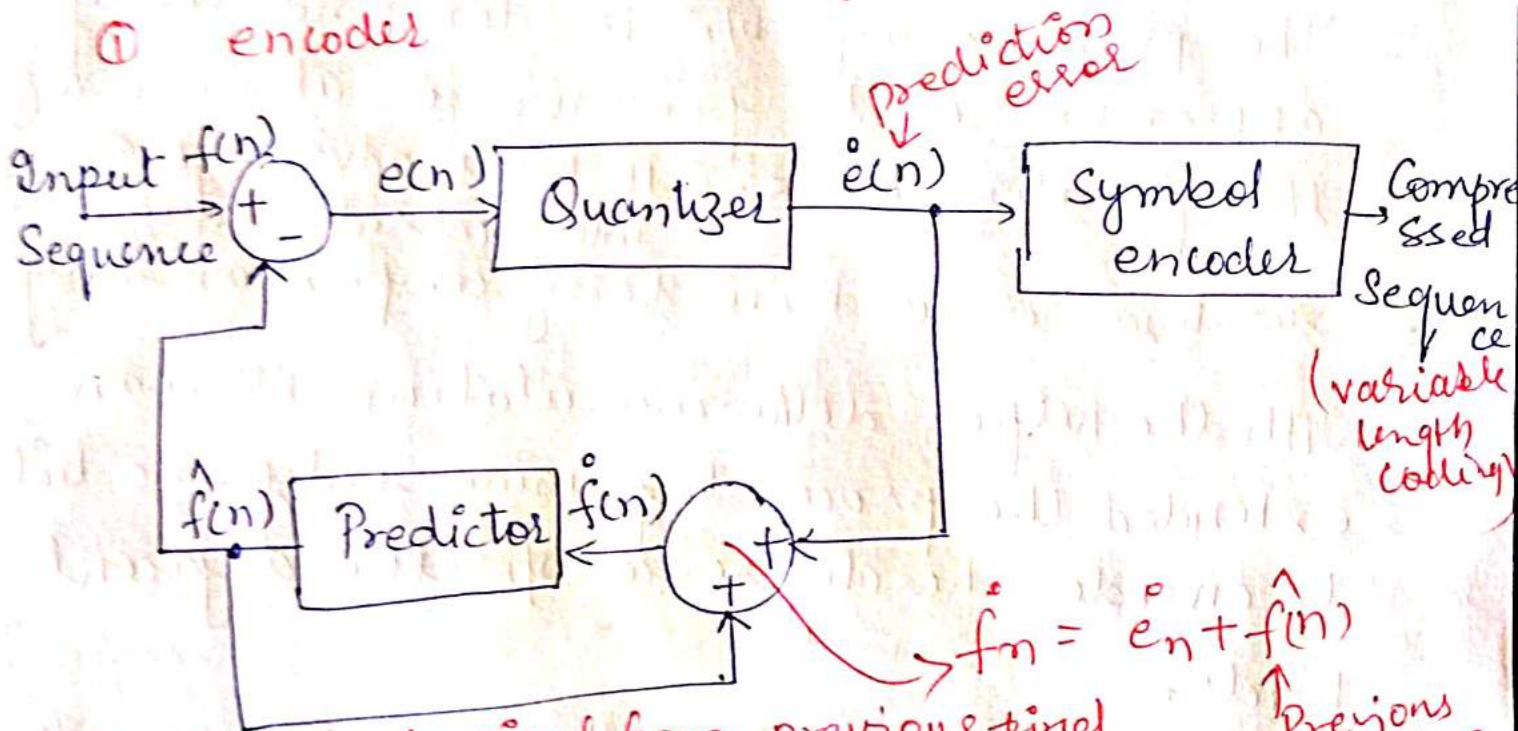 ① encoder
prediction
error
Input f(n)
Sequence
+
-
e(n)
Quantizer
e̊(n)
Symbol
encoder
Compre
ssed
Sequen
ce
(variable
length
coding)
f̂(n)
Predictor
f̊(n)
+
+
f̊n = e̊n + f̂(n)
Previous
previous pixel